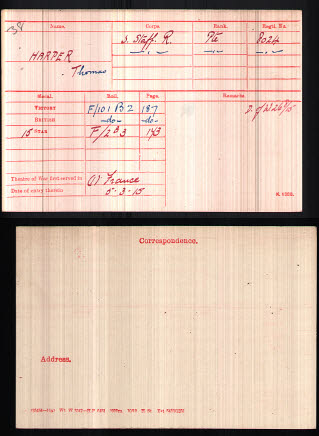 Name. Corps. Rank. Regtl. No.
HARPER S. Staff. R. Pte 8024
Thomas -„- -„- -„-
Medal. Roll. Page. Remarks.
VICTORY F/101 B2 187 D. of W.
BRITISH -do- -do-
15 STAR F/2 B3
Theatre of War first served in (1) France
Date of entry therein 5-3-15
Correspondence.
Address.